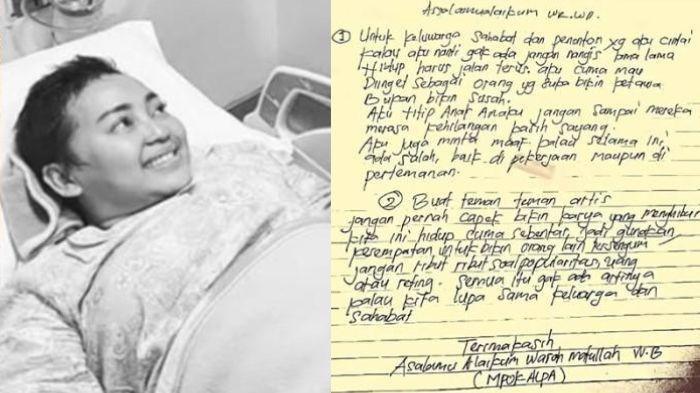 Assalamualaikum WR.WB.
① Untuk keluwarga sahabat dan penonton yg aku cintai
kalau aku nanti gak ada jangan nangis lama lama
Hidup harus jalan terus. aku cuma mau
Diinget sebagai orang yg suka bikin ketawa
Bukan bikin susah.
Aku titip Anak Anaku jangan sampai mereka
merasa kehilangan kasih sayang.
Aku juga minta maaf kalau selama ini,
ada salah, baik di pekerjaan maupun di
pertemanan.
② Buat teman teman artis
jangan pernah capek bikin karya yang menghibur
kita ini hidup cuma sebentar, jadi gunakan
kesempatan untuk bikin orang lain tersenyum
jangan ribut ribut soal popularitas, uang
atau reting. semua itu gak ada artinya
kalau kita lupa sama keluarga dan
sahabat
Terimakasih
W.B
(MPOK ALPA)